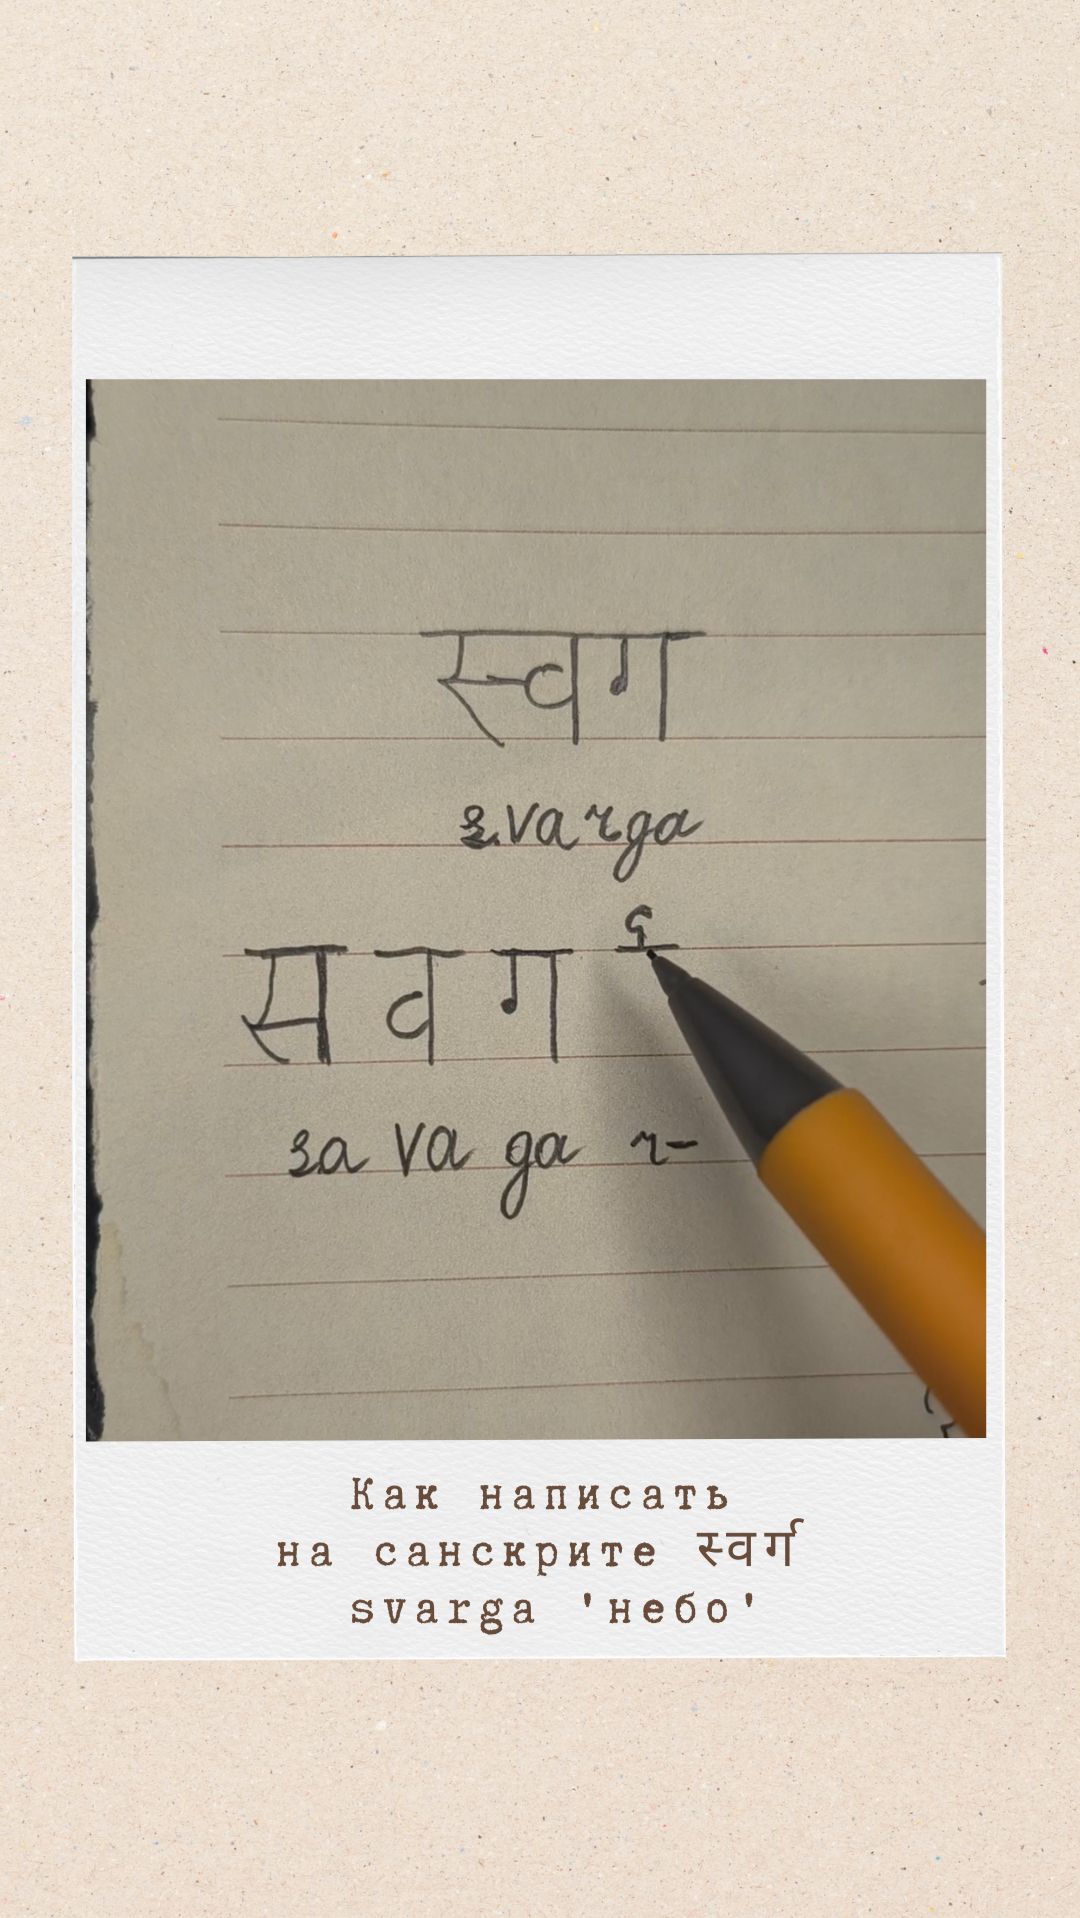 स्वग
svarga
स व ग र्
sa va ga r-
Как написать
на санскрите स्वर्ग
svarga 'небо'